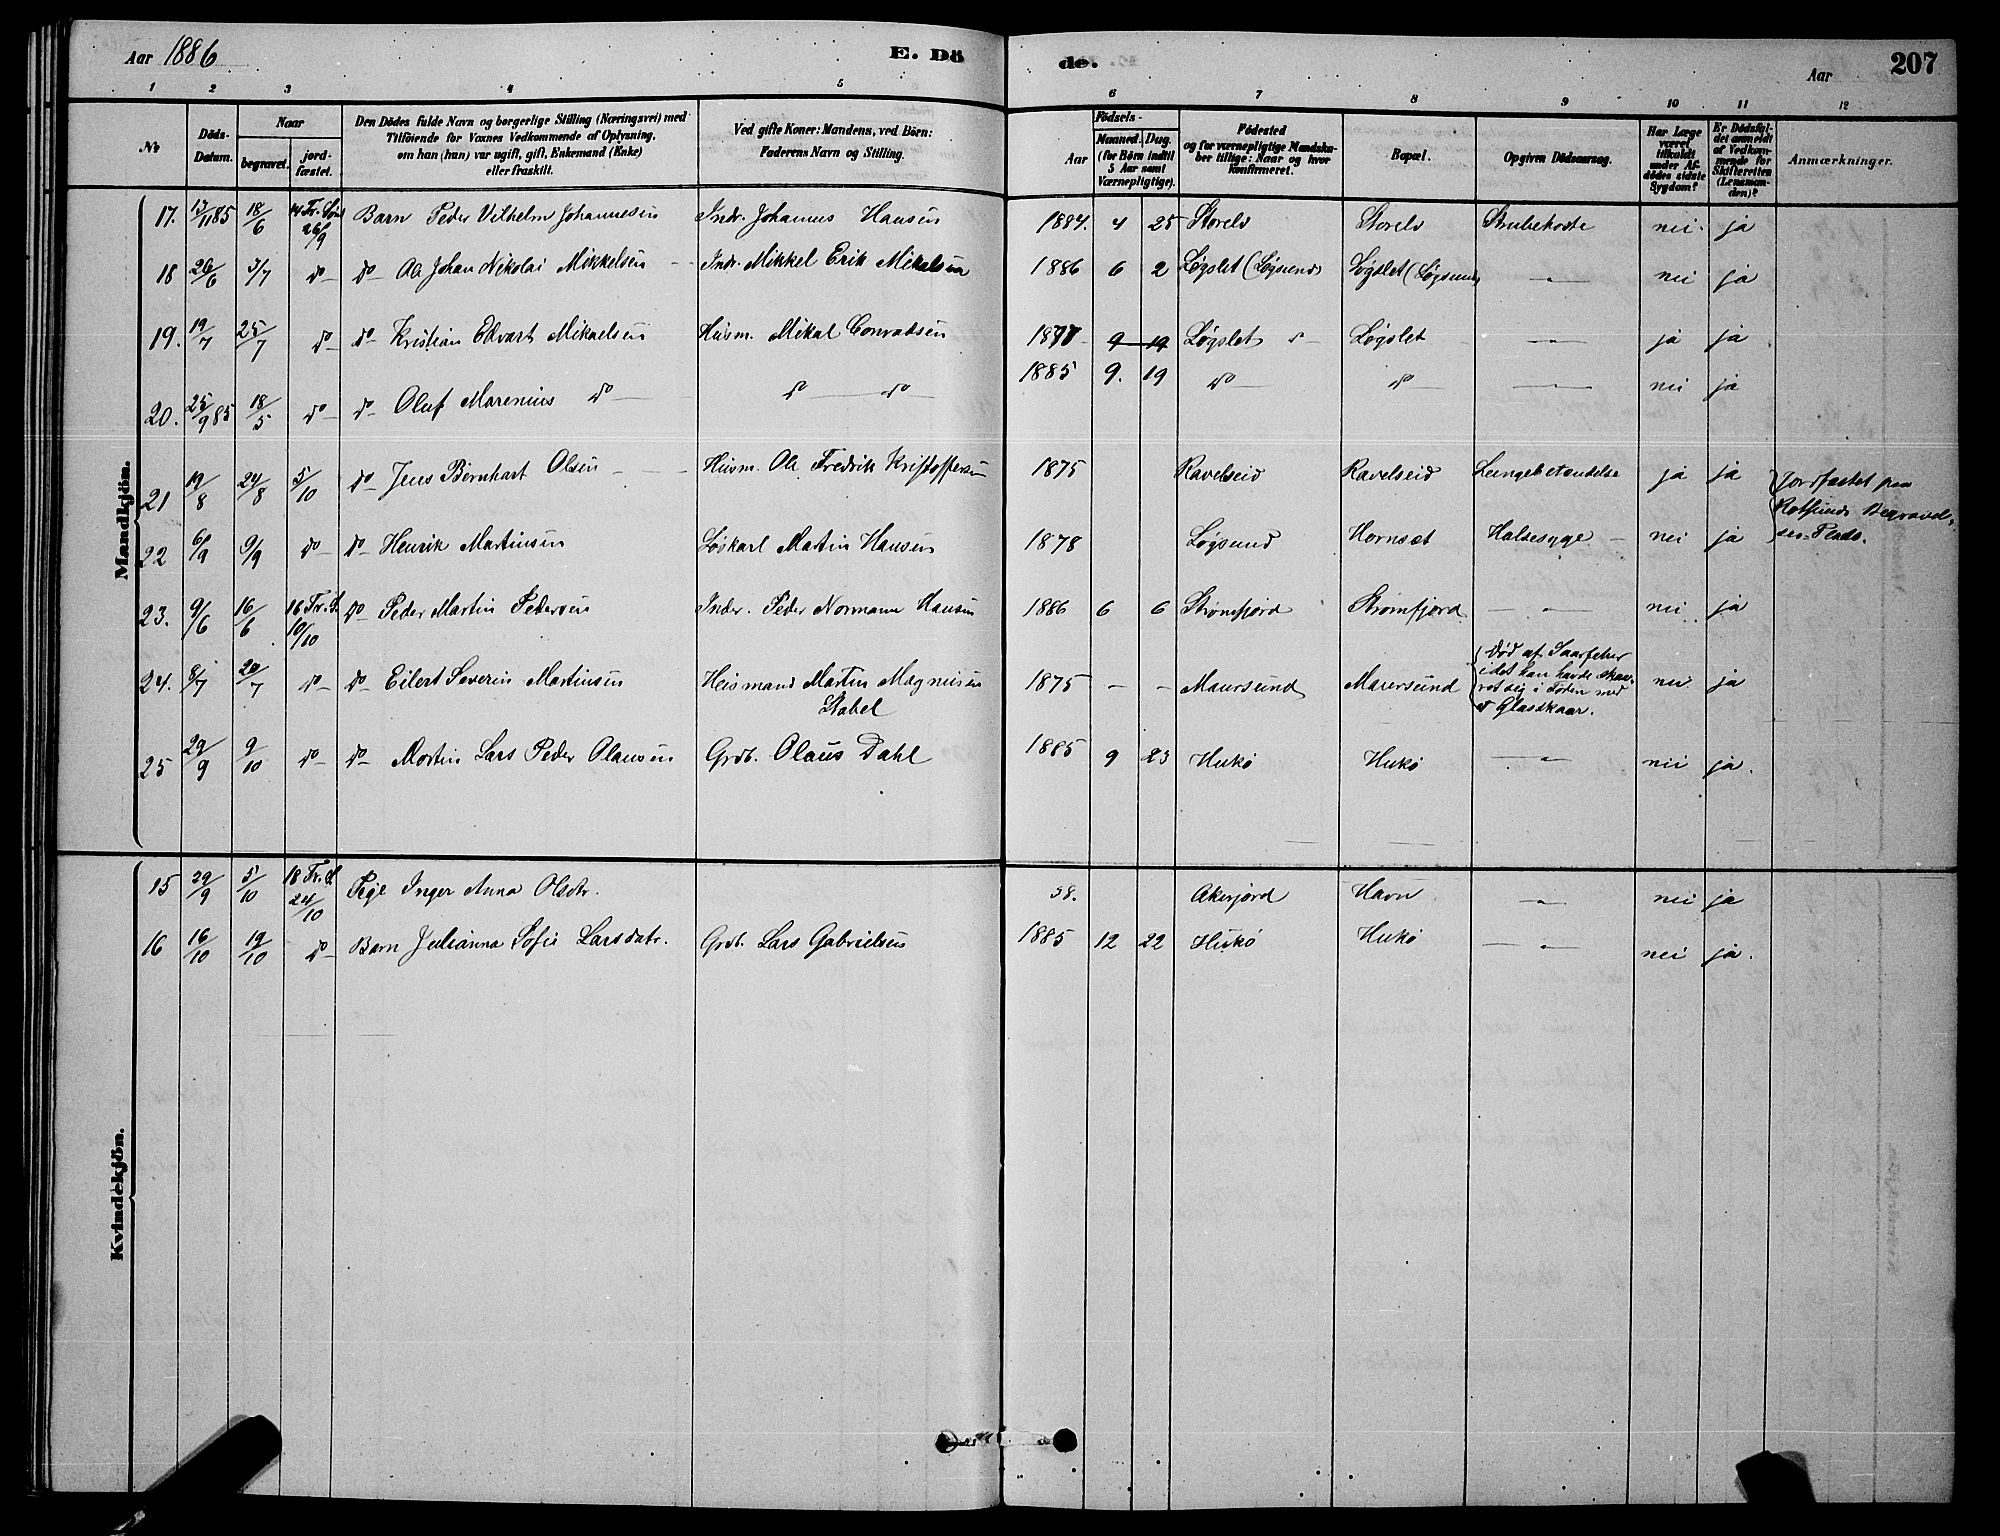 Aar 1886 E. Dö de. Aar 207
1 2 3 4 5 6 7 8 9 10 11 12
No
Döds-Datum.
Naar
begravet.
jord-fæstet.
Den Dödes fulde Navn og borgerlige Stilling (Næringsvei) med
Tilföiende for Voxnes Vedkommende af Oplysning,
om han (hun) var ugift, gift, Enkemand (Enke)
eller fraskilt.
Ved gifte Koner: Mandens, ved Börn:
Faderens Navn og Stilling.
Födsels-
Aar
Maaned. Dag.
(for Börn indtil
5 Aar samt
Værnepligtige).
Födested
og for værnepligtige Mandska-
ber tillige: Naar og hvor
konfirmeret.
Bopæl.
Opgiven Dödsaarsag.
Har Læge
været
tilkaldt
under Af-
dödes sidste
Sygdom?
Er Dödsfal-
det anmeldt
af Vedkom-
mende for
Skifteretten
(Lensman-
den)?
Anmærkninger.
Mandkjön.
17. 13/11 85 18/6 14 Fr. Sön 26/9 Barn Peder Vilhelm Johannesen Indr. Johannes Hansen 1884. 4 25 Storelv Storelv Strubehoste nei. ja
18 26/6 3/7 do do Ole Johan Nikolai Mikkelsen Indr. Mikkel Erik Mikelsen 1886 6 2 Løgslet (Løgsund) Løgslet (Løgsund) " nei ja
19. 19/7 25/7 do do Kristian Edvart Mikaelsen Husm. Mikal Conradsen 1877 9 19 Løgslet Løgslet " ja ja
20. 25/9 85 18/5 do do Oluf Marenius do do do 1885 9. 19 do do " nei ja
21 19/8 24/8 5/10 do Jens Bernhart Olsen Husm. Ole Fredrik Kristoffersen 1875 Ravelseid Ravelseid Lungebetændelse ja ja Jordfæstet paa
Rotsunds Begravel-
ses-Plads.
22 6/9 9/9 do do Henrik Martinsen Løskarl Martin Hansen 1878 Løgsund Hornset Halsesyge nei ja
23. 9/6 16/6 16 Fr. S. 10/10 do Peder Martin Pedersen Indr. Peder Normann Hansen 1886 6 6 Strømfjord Strømfjord " nei ja
24. 8/7 20/7 do do Eilert Severin Martinsen Husmand Martin Magnusen
Stabel 1875 - - Maursund Maursund Død af Saarfeber
idet han havde skaa-
ret sig i Foden med
et Glasskaar. nei ja
25 29/9 9/10 do do Morten Lars Peder Olausen Grdb. Olaus Dahl 1885 9 23 Hukø Hukø " nei ja.
Kvindekjön.
15 29/9 5/10 18 Fr. S. 24/10 Pige Inger Anna Olsdtr. 38. Akerjord Havn " nei ja
16 16/10 19/10 do Barn Julianna Sofie Larsdatr. Grdb. Lars Gabrielsen 1885 12 22 Hukø Hukø " nei ja.